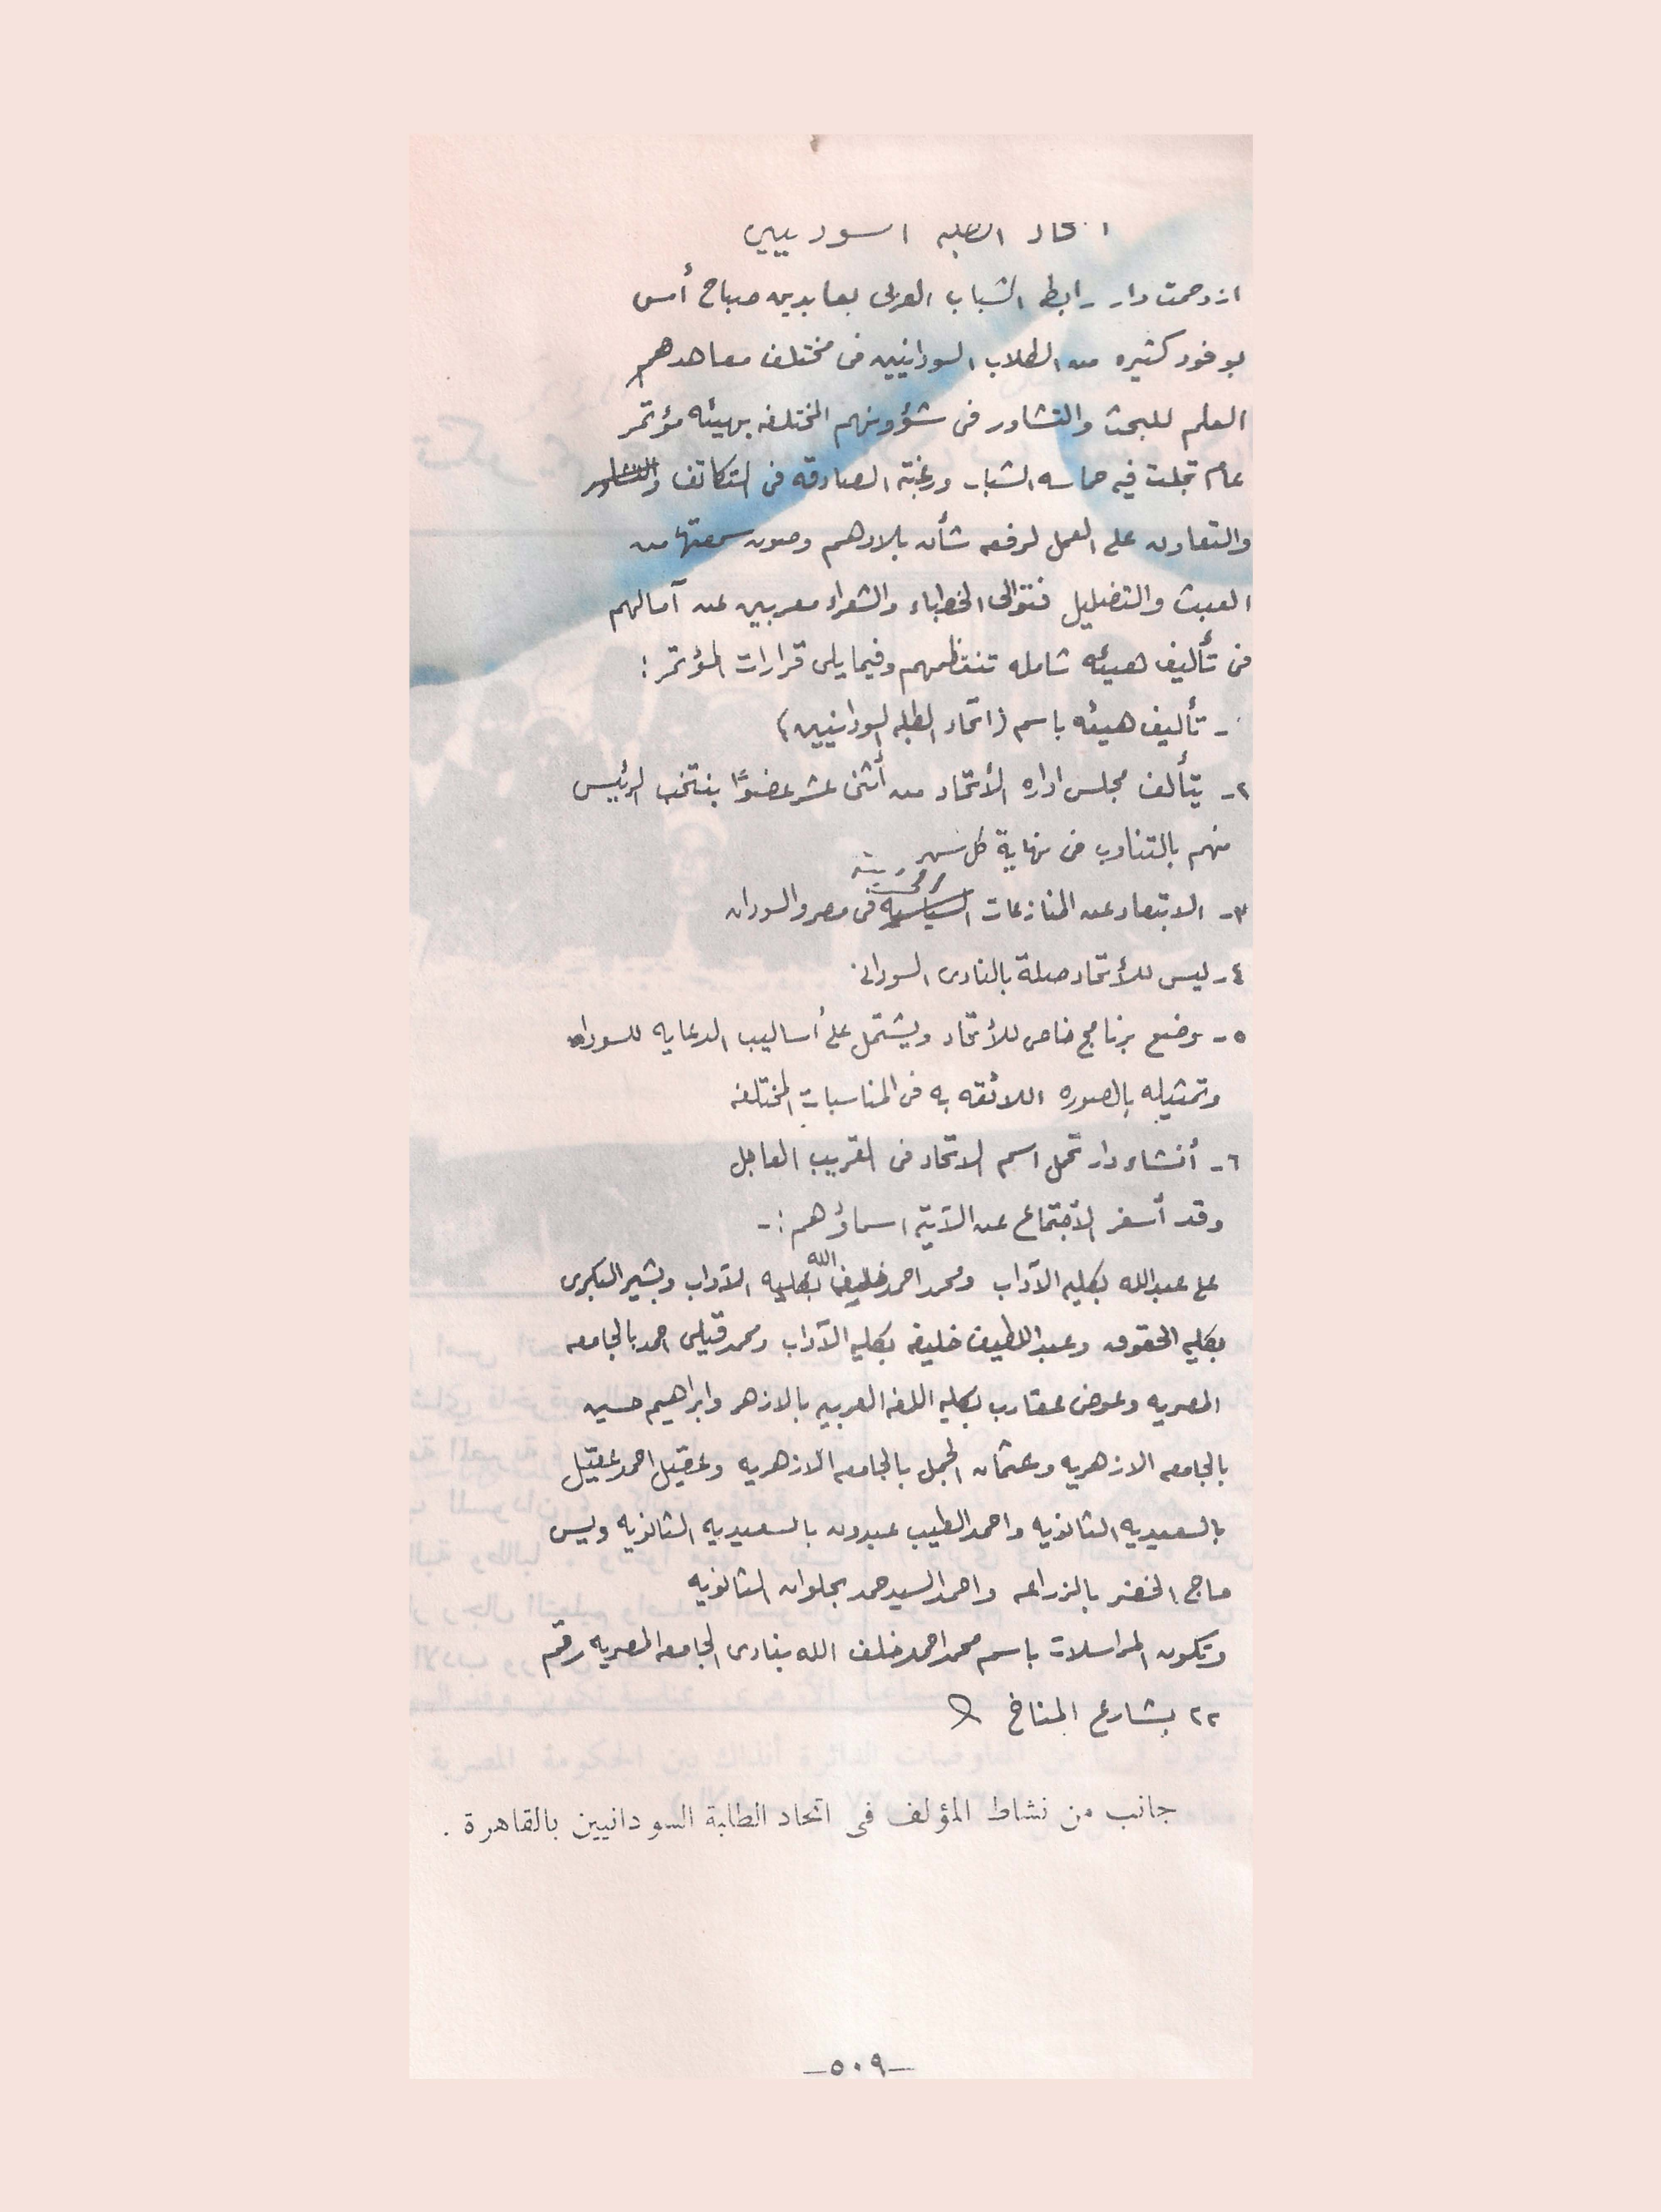 اتحاد الطلبه السودنيين
ازدحمت دار رابطه الشباب العربى بعابدين صباح أمس
بوفود كثيره من الطلاب السودانيين فى مختلف معاهدهم
العلم للبحث والتشاور فى شؤونهم المختلفه بهيئه مؤتمر
عام تجلت فيه حماسه الشباب ورغبته الصادقه فى التكاتف
والتعاون على العمل لرفعه شأن بلادهم وصون سمعتها من
العبث والتضليل فتوالى الخطباء والشعراء معربين عن آمالهم
فى تأليف هيئه شامله تنتظمهم وفيما يلى قرارات المؤتمر :
- تأليف هيئه باسم (اتحاد الطلبه السودانيين)
٢- يتألف مجلس اداره الأتحاد من أثنى عشر عضوًا ينتخب الرئيس
منهم بالتناوب فى نهاية كل شهر
٣- الابتعاد عن المنازعات السياسيه فى مصر والسودان
٤- ليس للأتحاد صلة بالنادى السودانى
٥- يوضع برنامج خاص للأتحاد ويشتمل على أساليب الدعايه للسودان
وتمثيله بالصوره اللائقه به فى المناسبات المختلفه
٦- أنشاء دار تحمل اسم الاتحاد فى القريب العاجل
وقد أسفر الأجتماع عن الآتية اسماؤهم :-
على عبدالله بكليه الآداب ومحمد احمد خلف الله بكليه الآداب وبشير البكرى
بكليه الحقوق وعبد اللطيف خليفه بكليه الآداب ومحمد قيلى احمد بالجامعه
المصريه وعوض عقارب بكليه اللغه العربيه بالازهر وابراهيم حسين
بالجامعه الازهريه وعثمان الجمل بالجامعه الازهريه وعقيل احمد عقيل
بالسعيديه الثانويه واحمد الطيب عبدون بالسعيديه الثانويه ويس
حاج الخضر بالزراعه واحمد السيد حمد بحلوان الثانويه
وتكون المراسلات باسم محمد احمد خلف الله بنادى الجامعه المصريه رقم
٢٢ بشارع المناخ
جانب من نشاط المؤلف فى اتحاد الطلبة السودانيين بالقاهرة .
—٥٠٩—